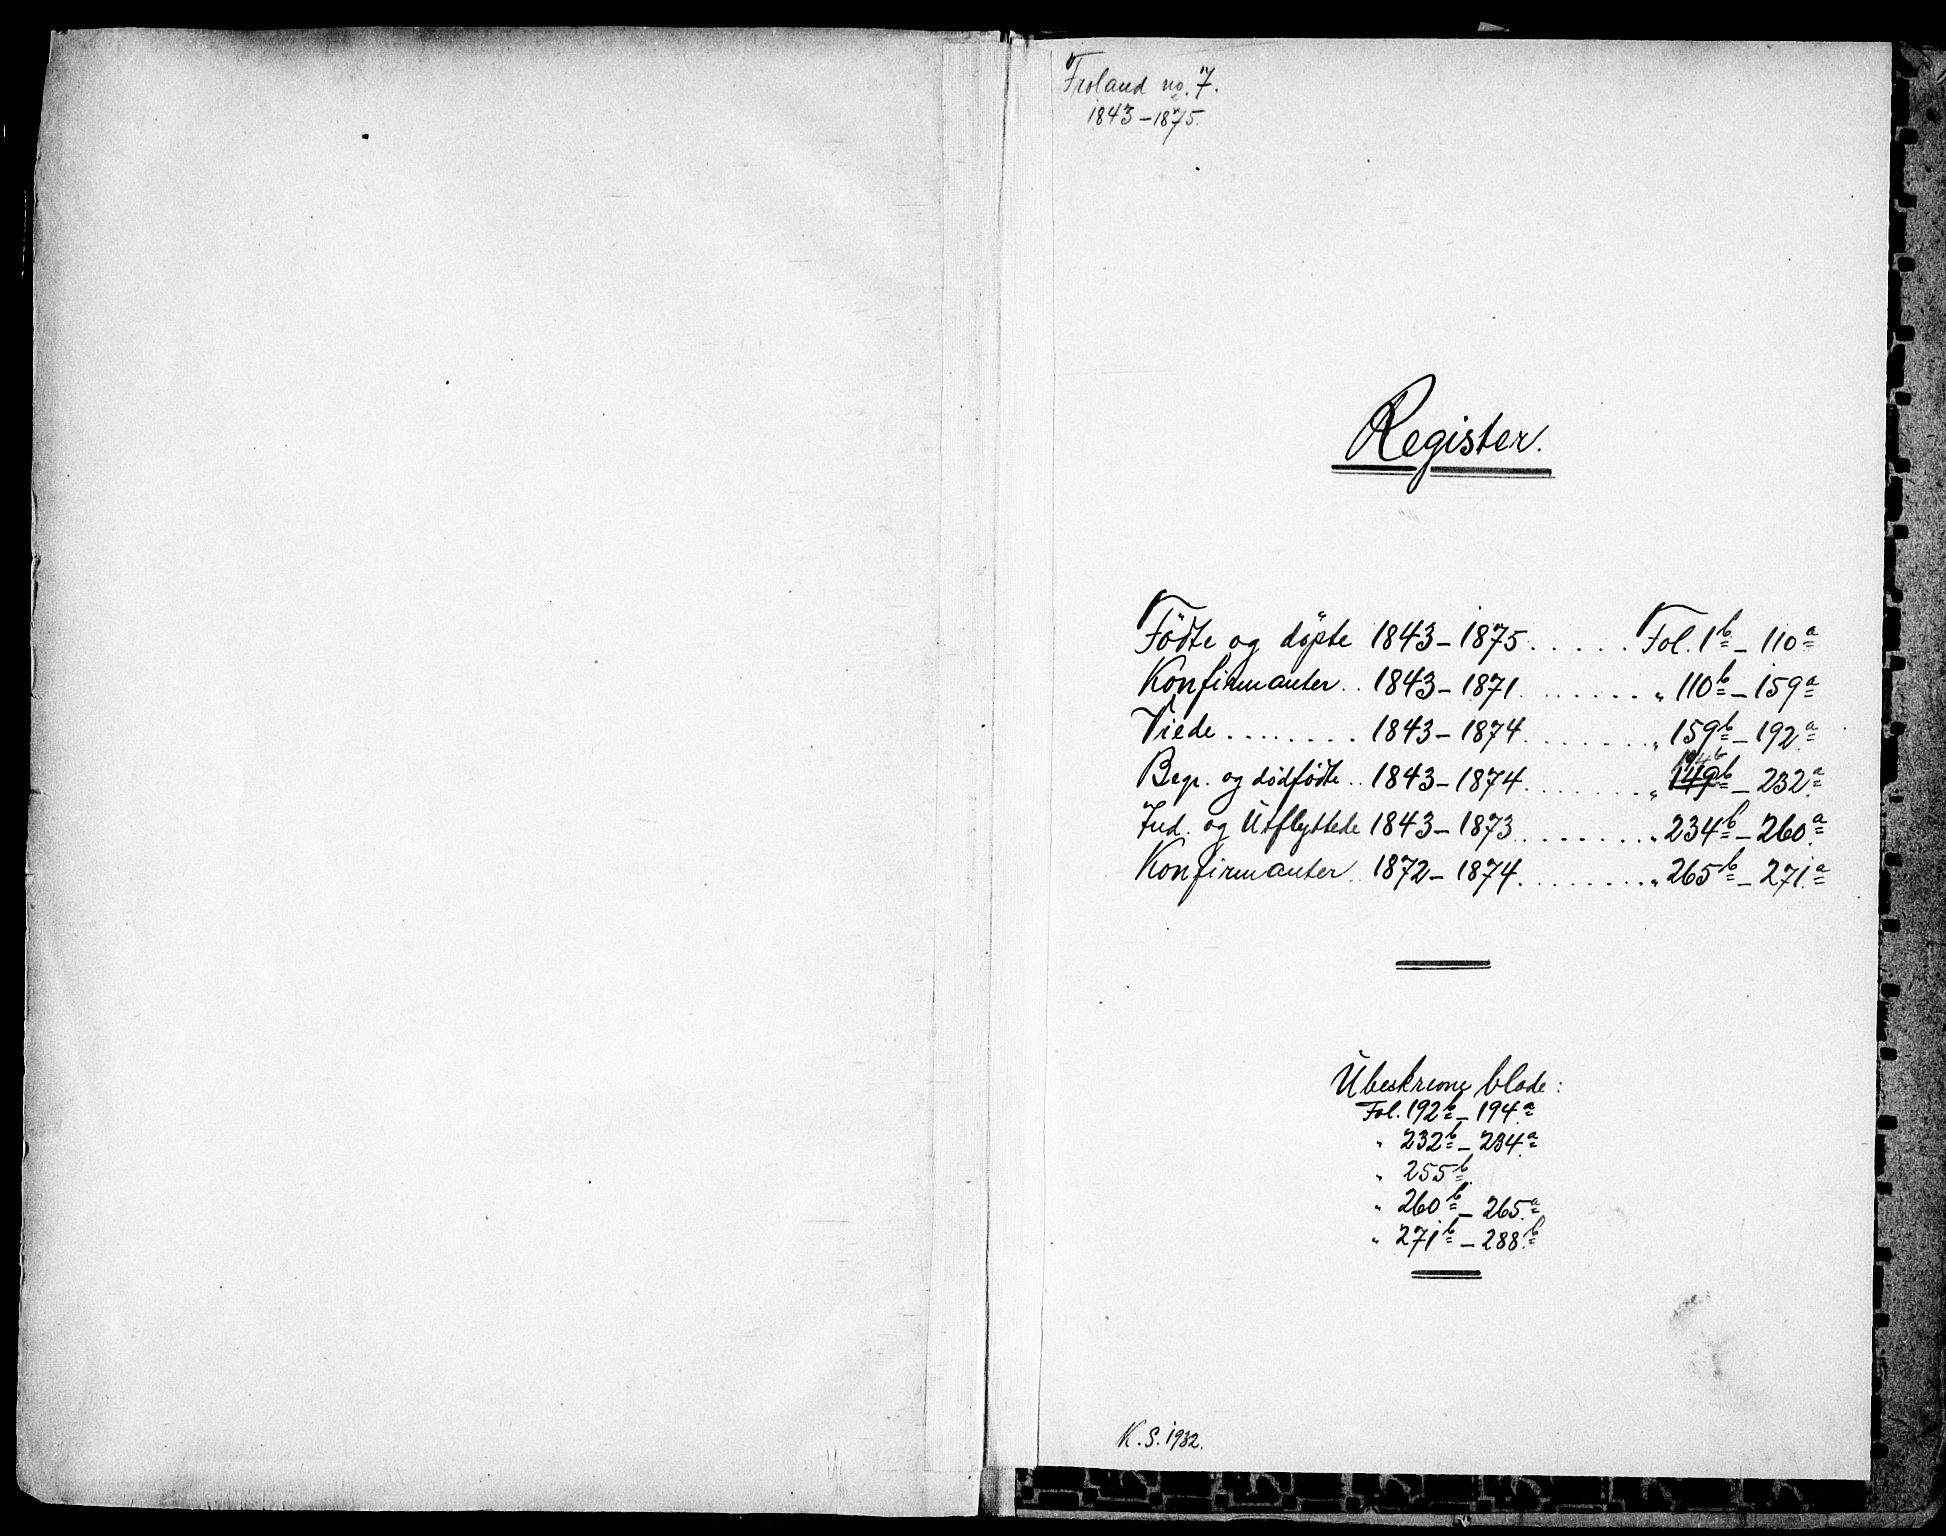 Froland no. 7.
1843-1875.
Register.
Födte og döpte 1843-1875. . . . . Fol. 1b - 110a
Konfirmanter . . 1843-1871. . . . . . . " 110b - 159a
Viede . . . . . . . . 1843-1874. . . . . . . " 159b - 192a
Begr. og dødfødte . . 1843-1874. . . . . . . " 149b 194b - 232a
Ind. og Utflyttede 1843-1873. . . . . . . " 234b - 260a
Konfirmanter . . 1872-1874. . . . . . . . " 265b - 271a
Ubeskrevne blade:
Fol. 192b - 194a
" 232b - 234a
" 255b
" 260b - 265a
" 271b - 288b
K. S. 1932.